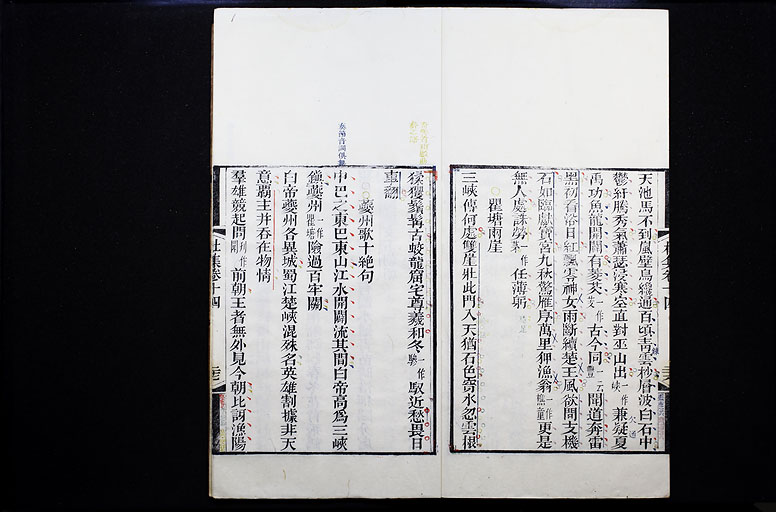 天池馬不到嵐壁鳥纔通百頃青雲杪層波白石中
鬱紆騰秀氣蕭瑟浸寒空直對巫山出峽一作兼疑夏
禹功魚龍開闢有菱芡一作古今同一云聞道奔雷
黑初看浴日紅飄零神女雨斷續楚王風欲問支機
石如臨獻寶宮九秋驚雁序萬里狎漁翁一作樵童更是
無人處誅茅一作任薄躬
瞿塘兩崖
三峽傳何處雙崖壯此門入天猶石色穿水忽雲根
猱玃鬚髯古蛟龍窟宅尊羲和冬一作馭近愁畏日
車翻
夔州歌十絕句
中巴之東巴東山江水開闢流其間白帝高爲三峽
鎮夔州瞿塘險過百牢關
白帝夔州各異城蜀江楚峽混殊名英雄割據非天
意霸主并吞在物情
羣雄競起問前朝王者無外見今朝比訝漁陽
杜集卷十四